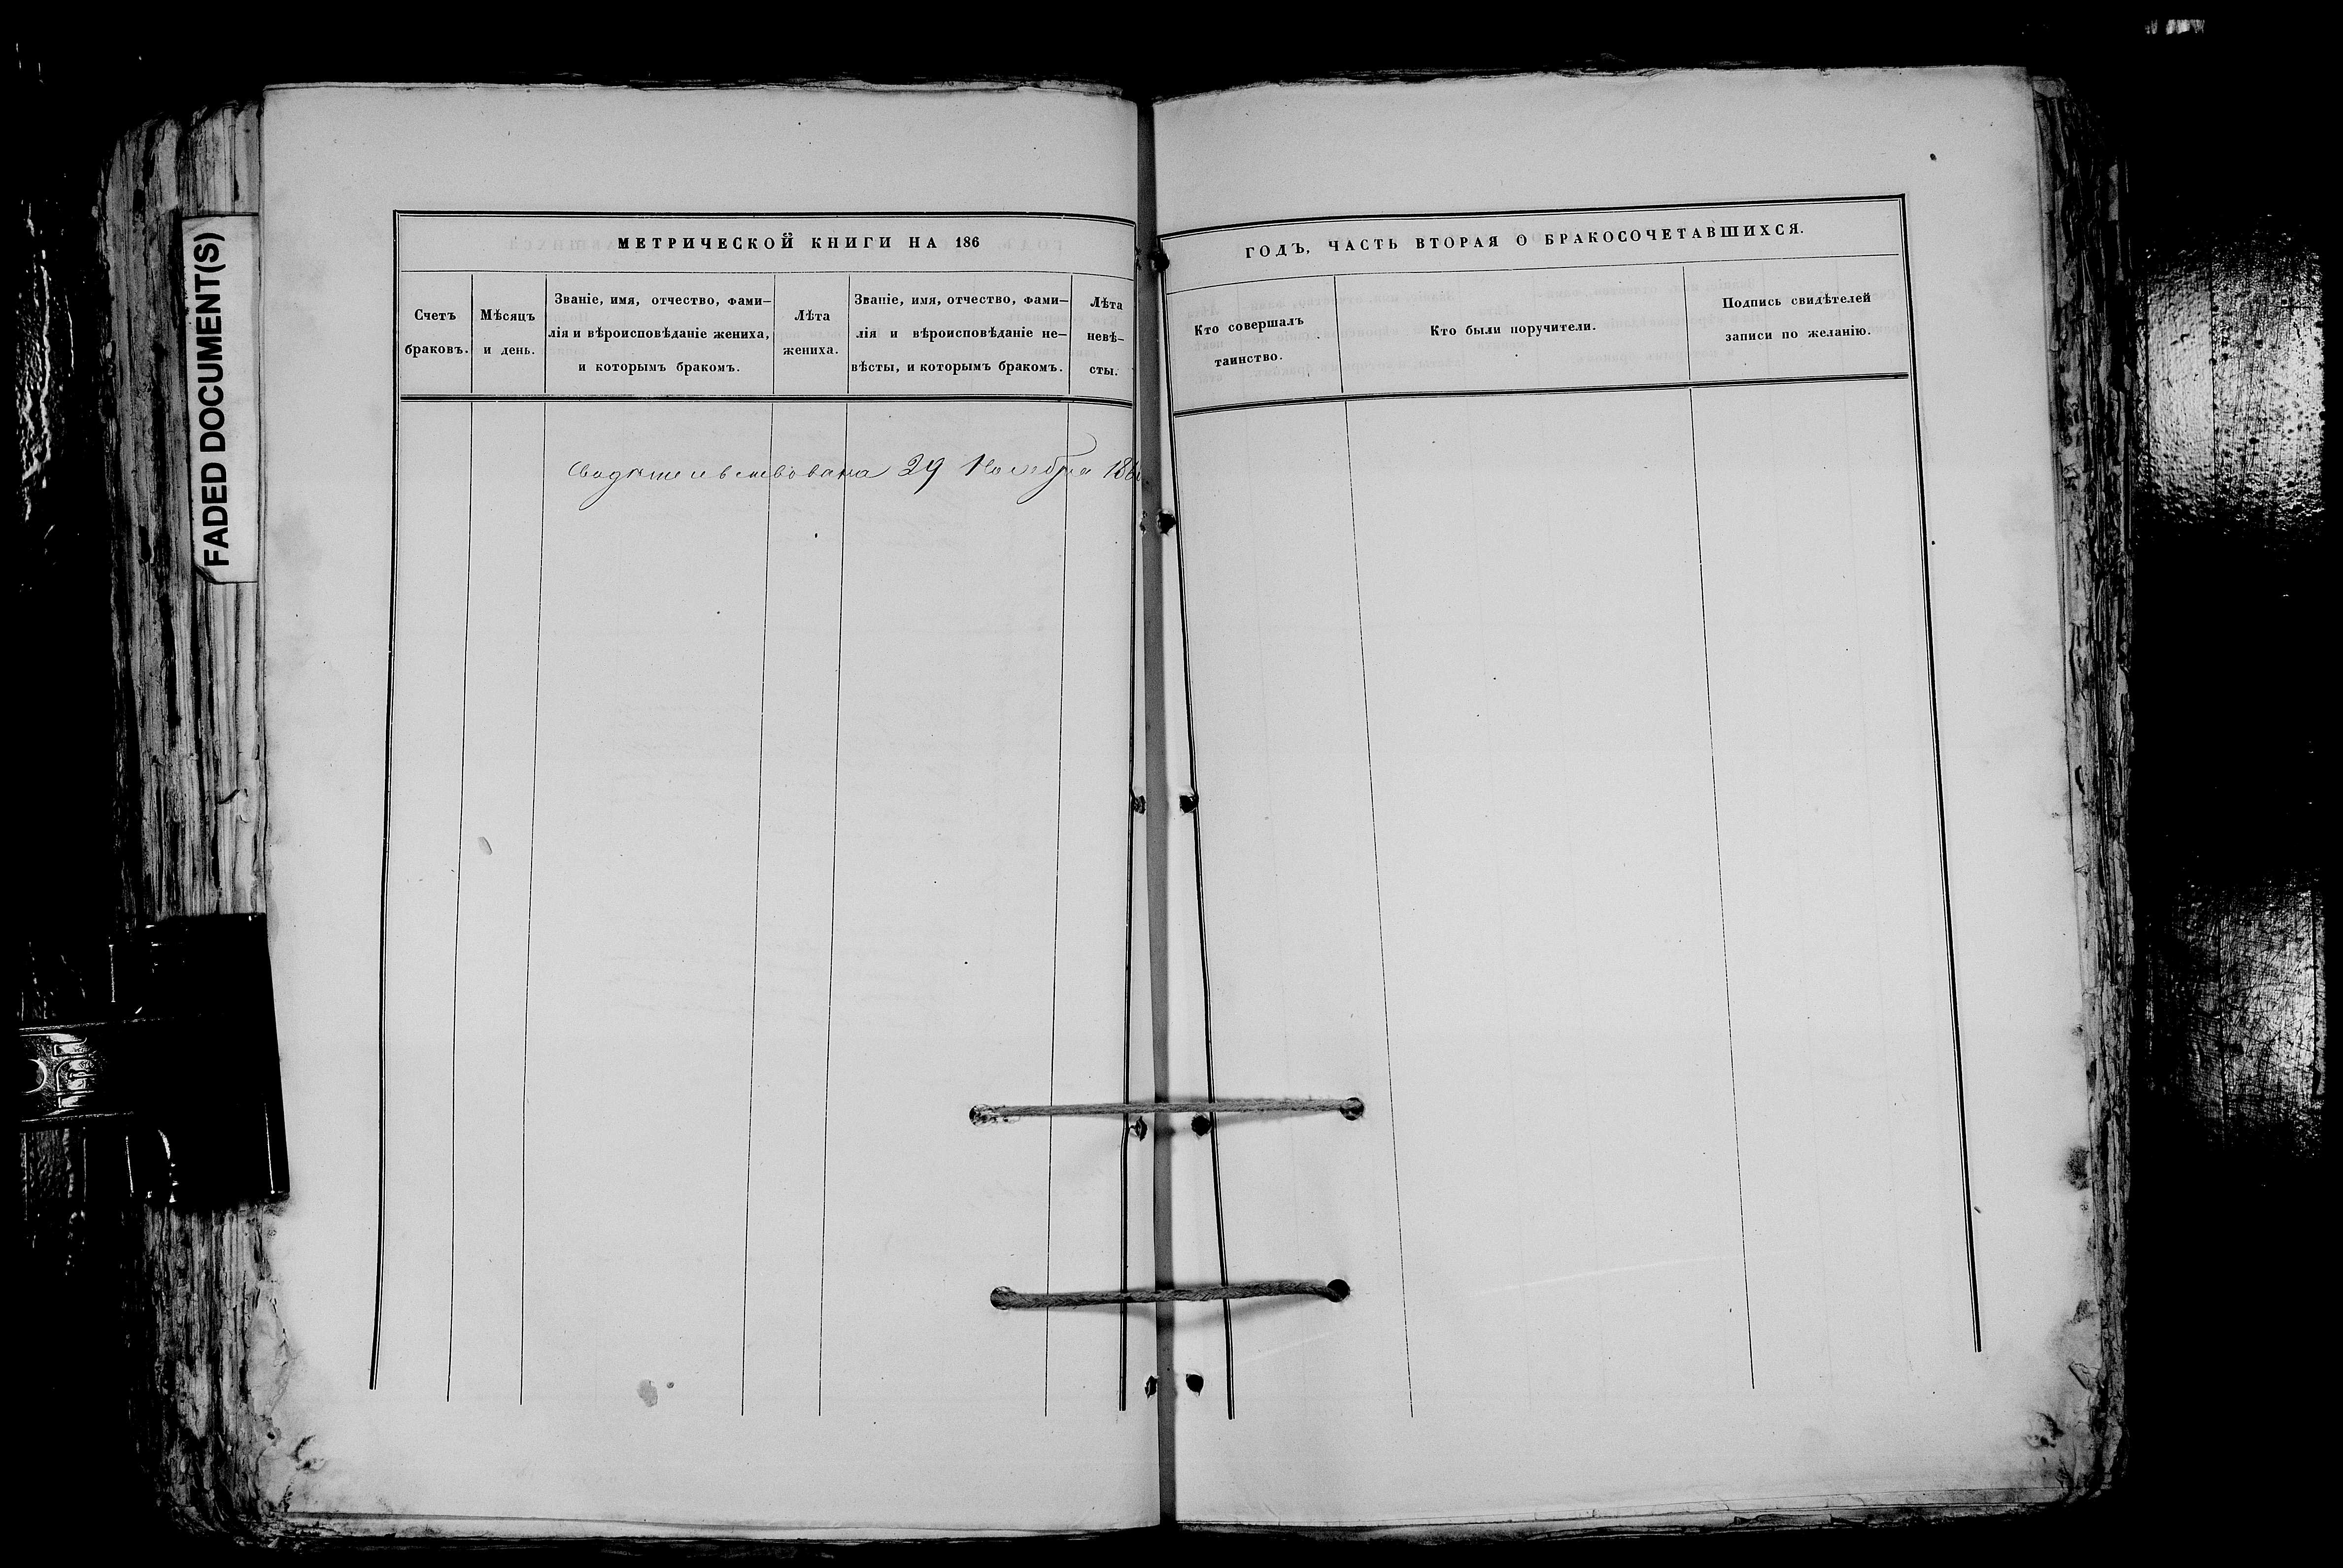 FADED DOCUMENT(S)
МЕТРИЧЕСКОЙ КНИГИ НА 186
Счетъ
браковъ.
Мѣсяцъ
и день.
Званіе, имя, отчество, фами–
лія и вѣроисповѣданіе жениха,
и которымъ бракомъ.
Лѣта
жениха.
Званіе, имя, отчество, фами–
лія и вѣроисповѣданіе не–
вѣсты, и которымъ бракомъ.
Лѣта
невѣ–
сты.
Свидѣтельствована 29 Ноября
ГОДЪ, ЧАСТЬ ВТОРАЯ О БРАКОСОЧЕТАВШИХСЯ.
Кто совершалъ
таинство.
Кто были поручители.
Подпись свидѣтелей
записи по желанію.